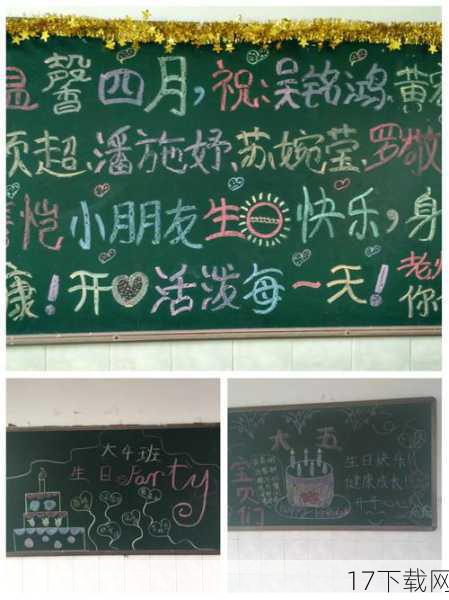 温馨四月,祝:吴铭鸿、黄
颜超、潘施妤、苏婉莹、罗敬
恺小朋友生日快乐,身
康!开活泼每一天!老
你
大4班
生日Party
大五
宝贝们
生日快乐!
健康成长!
开开
17下载网